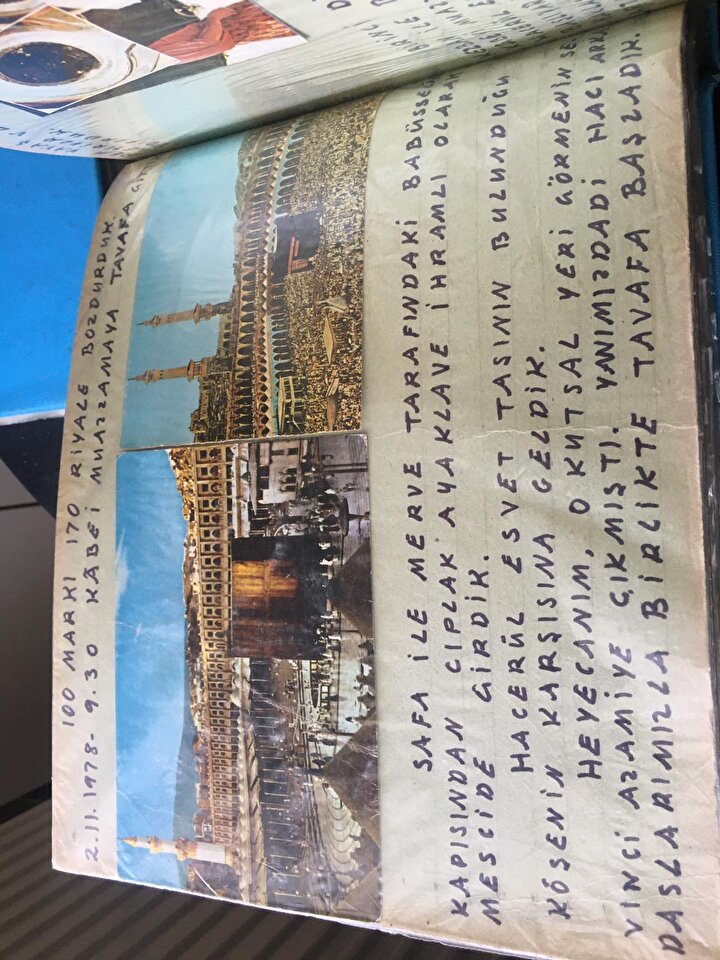 100 MARKI 170 RİYALE BOZDURDUK.
2.11.1978- 9.30 KÂBEİ MUAZZAMAYA TAVAFA
SAFA İLE MERVE TARAFINDAKİ
KAPISINDAN ÇIPLAK AYAKLAVE İHRAMLI OLARAK
MESCİDE GİRDİK.
HACERÜL ESVET TAŞININ BULUNDUĞU
KÖŞENİN KARŞISINA GELDİK.
HEYECANIM, O KUTSAL YERİ GÖRMENİN
VİNCİ AZAMİYE ÇIKMIŞTI. YANIMIZDADİ HACI
DAŞLARIMIZLA BİRLİKTE TAVAFA BAŞLADIK.